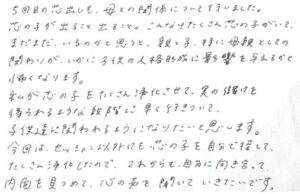 5回目の芯出しも、母との関係について行いました。
芯の子が出ること出ること。こんなにたくさん芯の子がいて、
まだまだ、いるのかと思うと、親と子、特に母親としての
関わりが、いかに子供の人格形成に影響を与えるかと
怖くなります。
私が芯の子をたくさん浄化させて、実の
得られるような段階に早く行きついて、
子供達に関われるようになりたいと思います。
今回は、セッション以外にも芯の子を自分で接して、
たくさん浄化したので、これからも、自分に向き合って
内面を見つめて、心の声を聞いていきたいです。